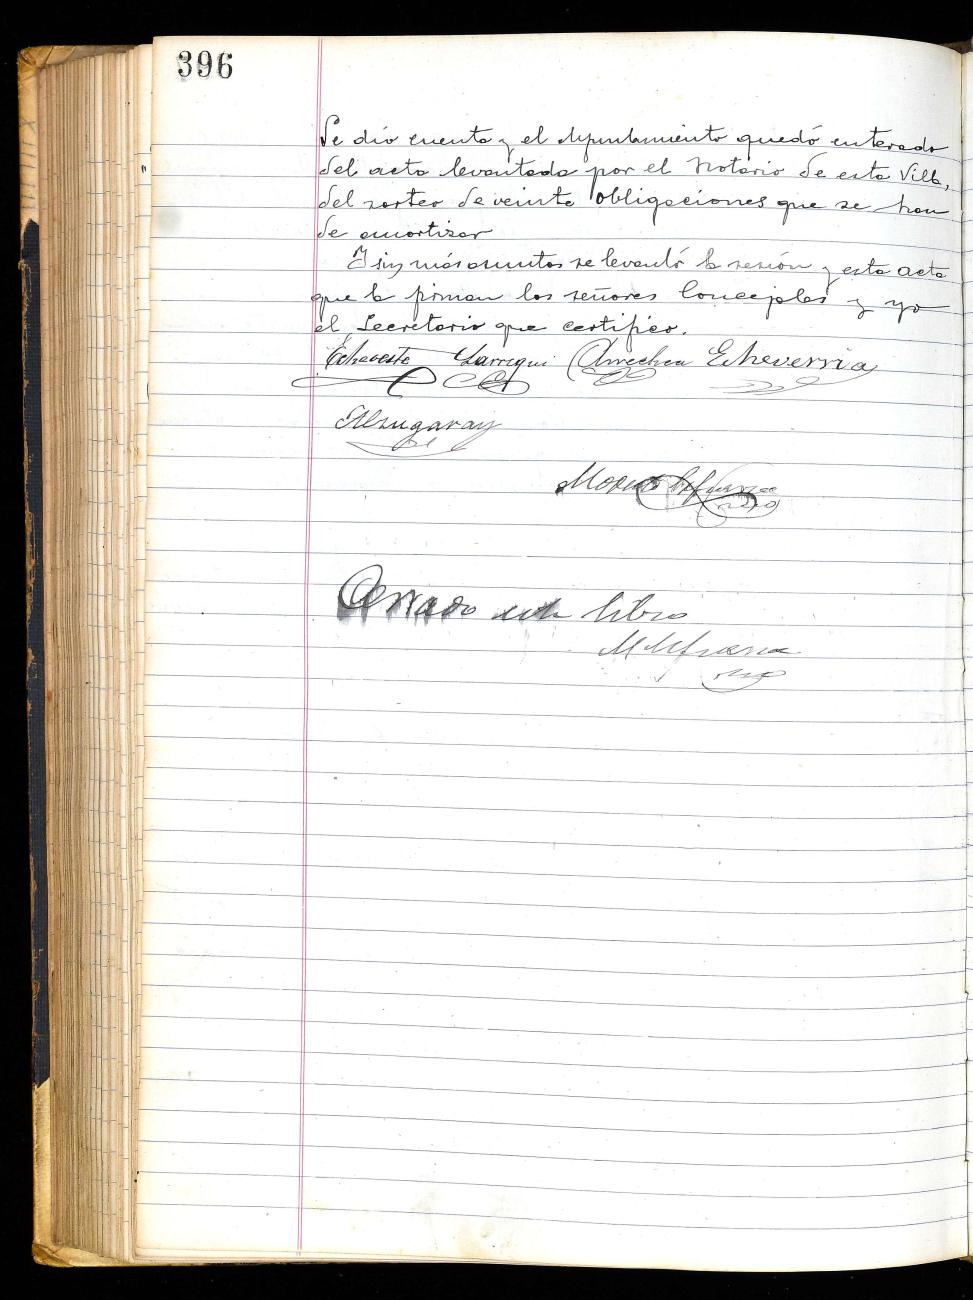 396
Se dio cuenta y el Ayuntamiento quedó enterado
del acta levantada por el Notario de esta Villa,
del sorteo de veinte obligaciones que se han
de amortizar
Y sin más asuntos se levantó la sesión y esta acta
que la firman los señores Concejales y yo
el Secretario que certifico.
Echeveste Larregui Arrechea Echeverria
Alzugaray
Moreno
Cerrado este libro